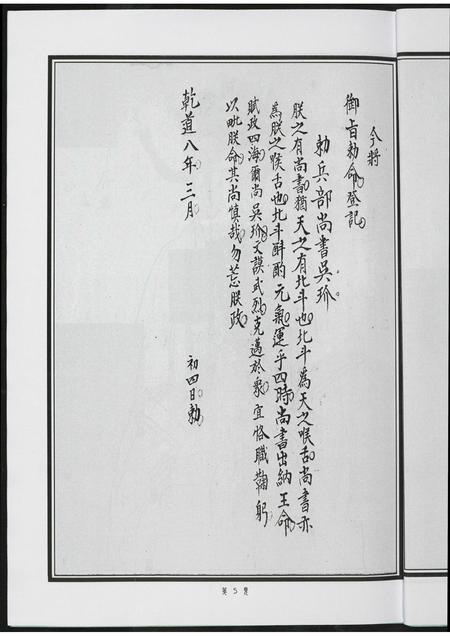 今將
御旨勅命登記
勅兵部尚書吳玠
朕之有尚書猶天之有北斗也北斗為天之喉舌尚書亦
為朕之喉舌也北斗斟酌元氣運乎四時尚書出納王命
賦政四海爾尚吳玠文謨武烈克邁於衆宜恪職鞠躬
以毗朕命其尚慎哉勿荒朕政
乾道八年三月 初四日勅
第5頁